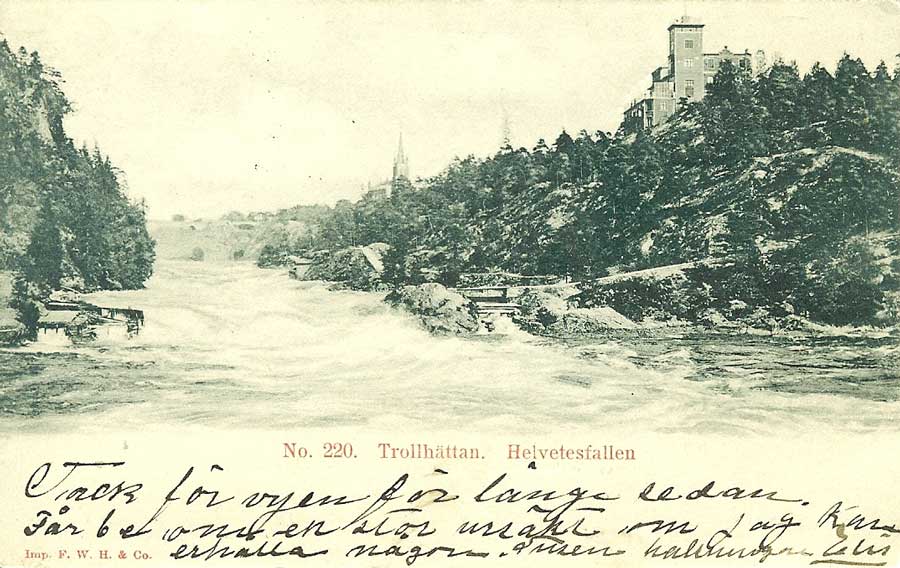 No. 220. Trollhättan. Helvetesfallen
Tack för vyen för länge sedan.
Får be om en stor ursäkt om jag kan
erhålla någon. Tusen hälsningar Elis
Imp. F. W. H. & Co.